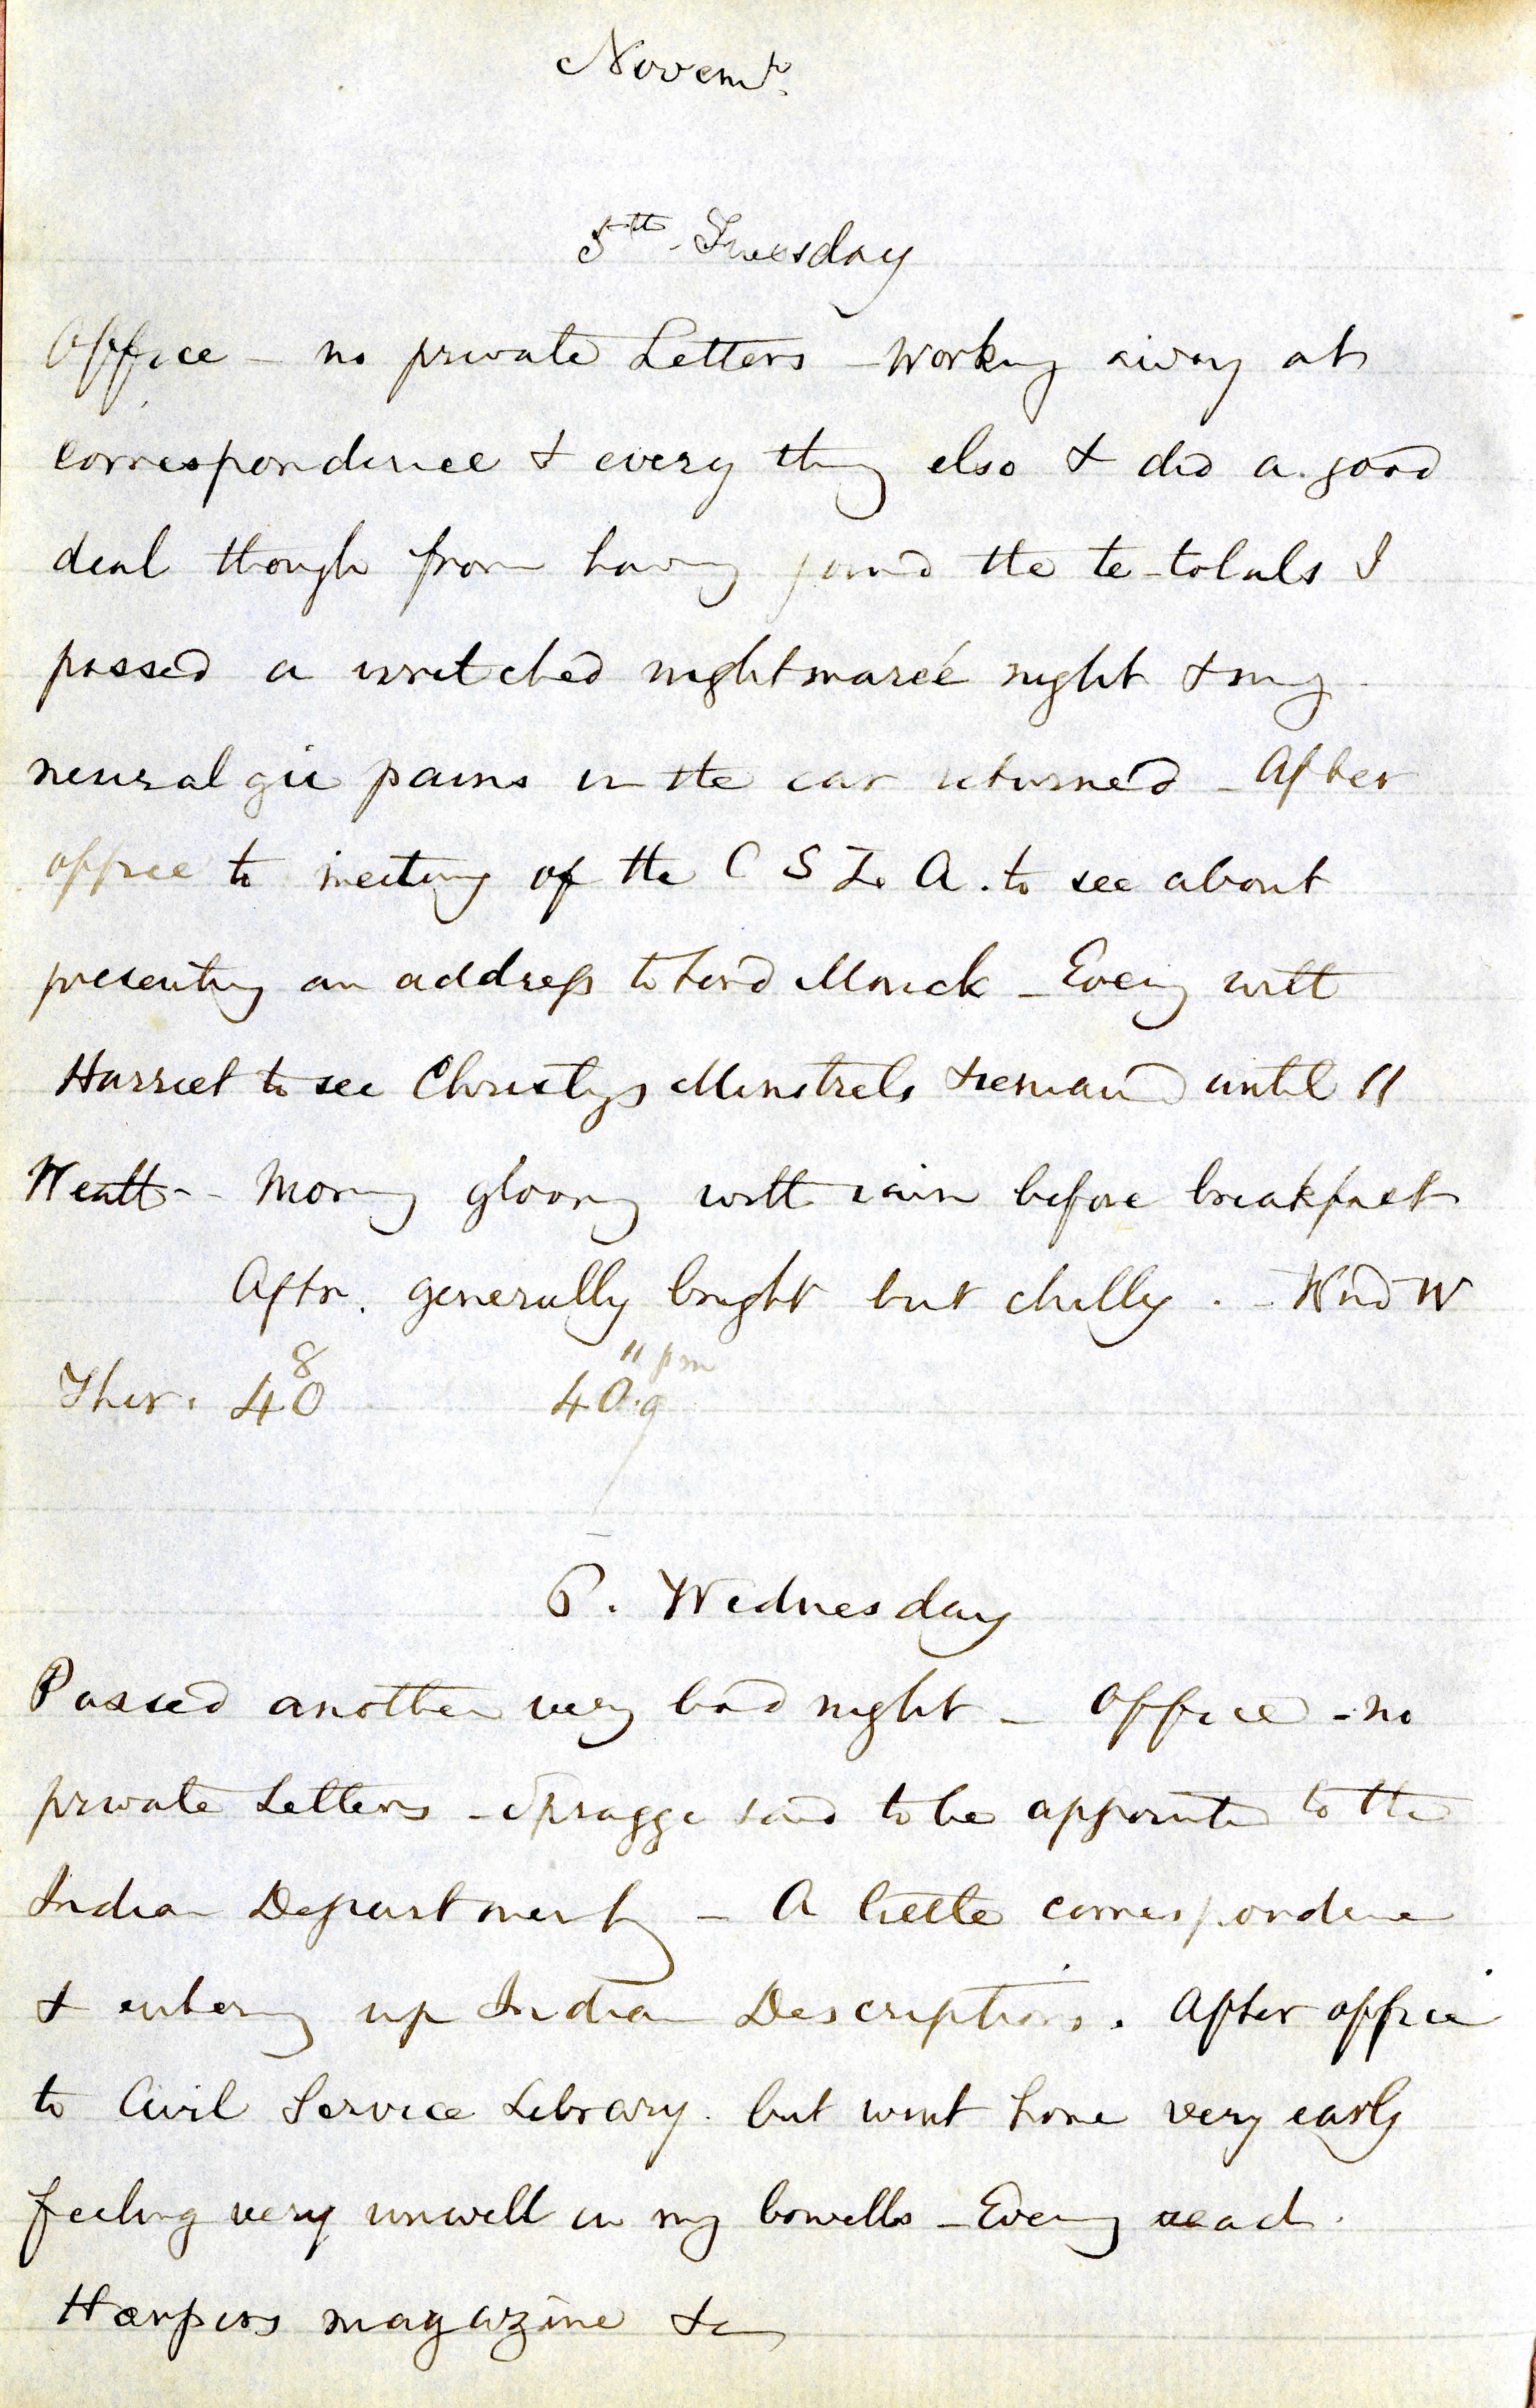 Novemr.
5th. Tuesday
Office - no private Letters - Working away at
correspondence & every thing else & did a good
deal though from having joined the te-totals I
passed a wretched nightmareé night & my
neuralgic pains in the ear returned - After
office to meeting of the C S L. A. to see about
presenting an address to Lord Monck - Eveing with
Harriet to see Christys Minstrels & remaind until 11
Weath - Morng gloomy with rain before breakfast
Aftn. generally bright but chilly. - Wind W
Ther. 40 8 40.9 11 pm
6. Wednesday
Passed another very bad night - Office - no
private Letters - Spragge said to be appointed to the
Indian Department - A little correspondence
& entering up Indian Descriptions. After office
to Civil Service Library. but went home very early
feeling very unwell in my bowells - Evening read
Harpers magazine &c